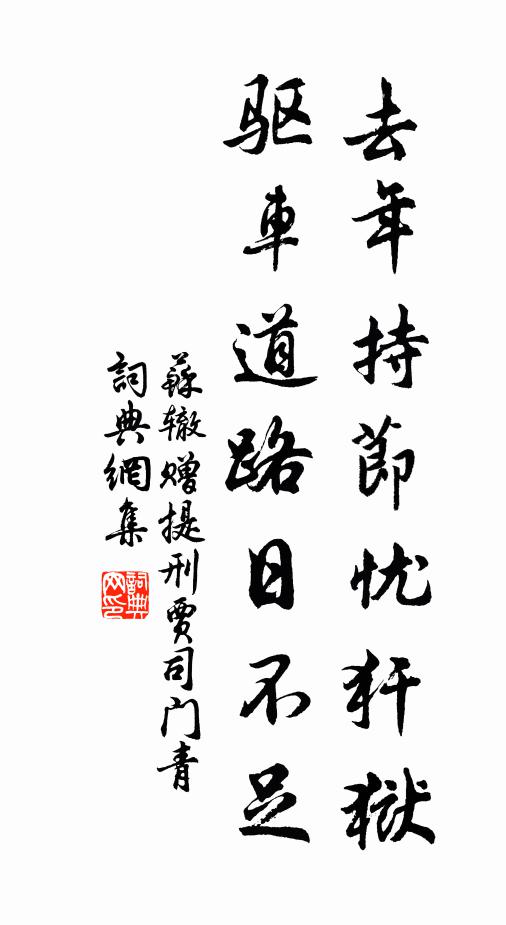 去年持節忧犴獄
驱車道路日不足
蘇辙赠提刑賈司门青
詞典網集
詞典网印